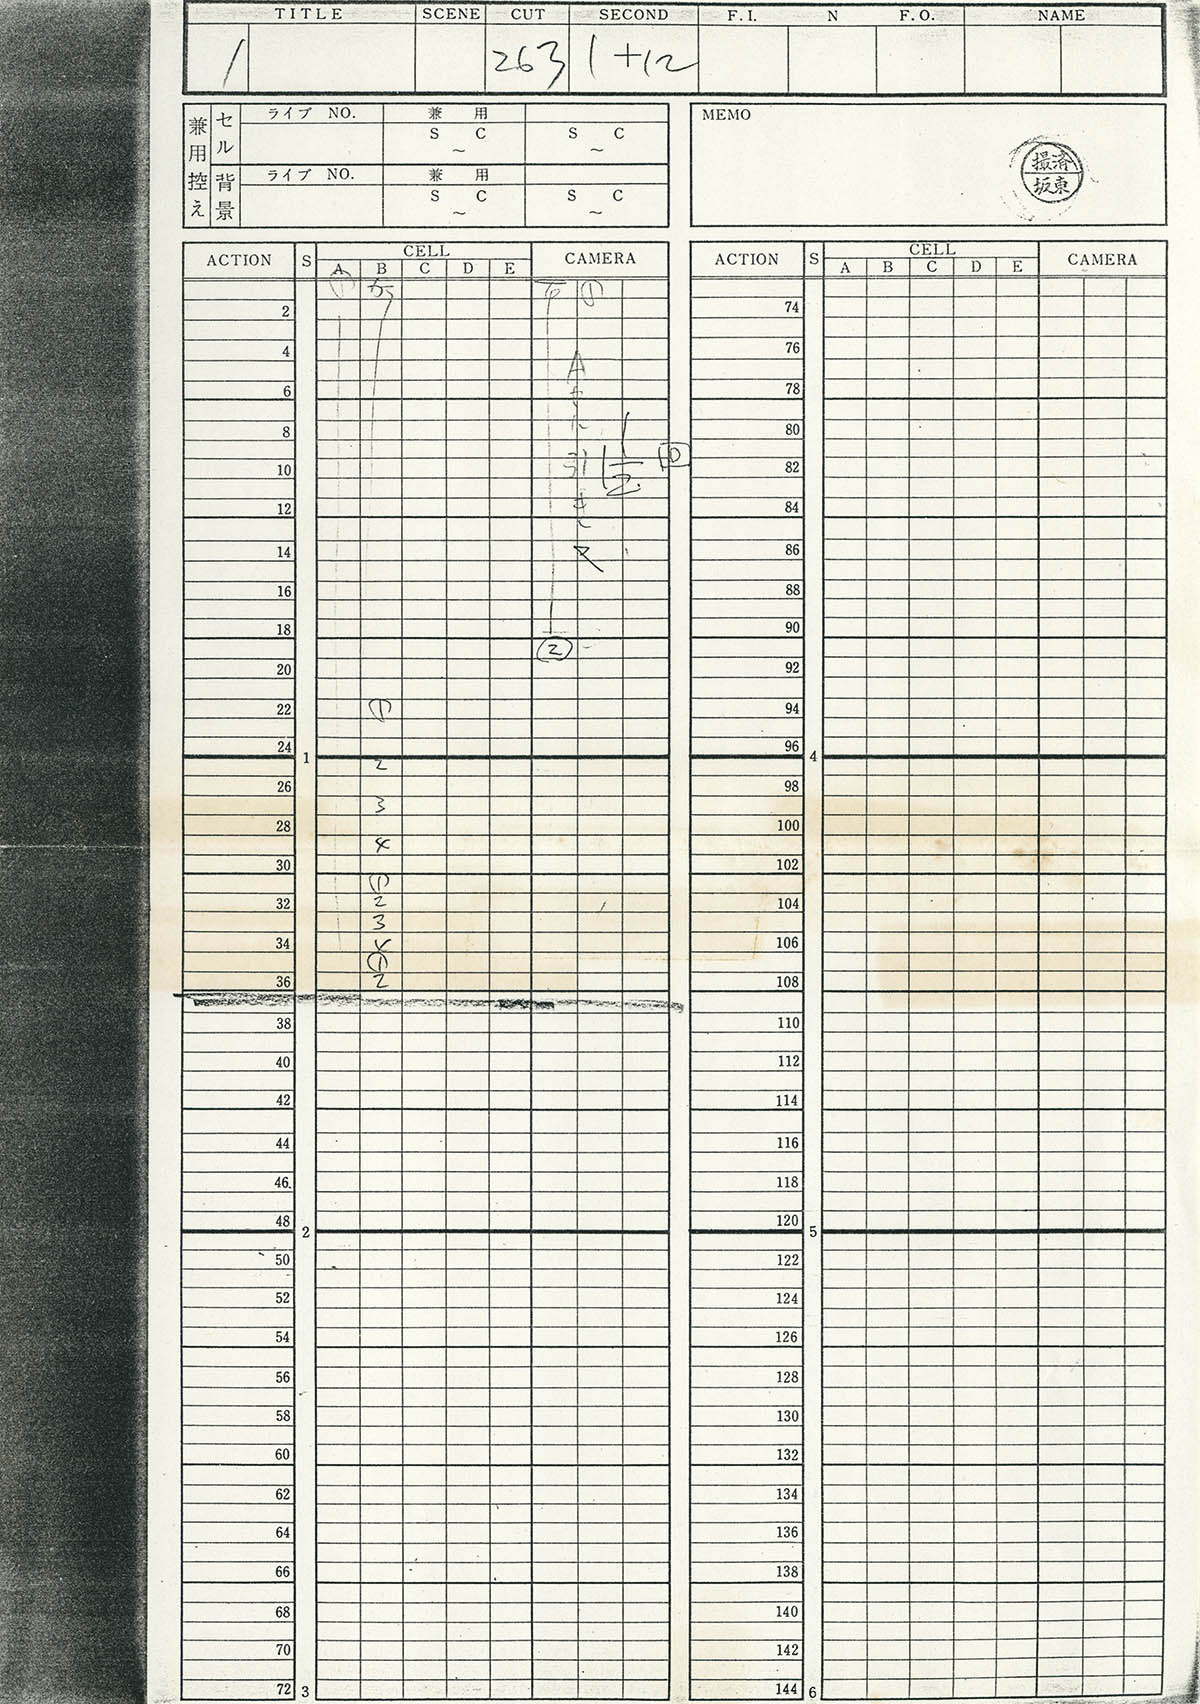 TITLE SCENE CUT SECOND F.I. N F.O. NAME
1 263 1+12
兼用控え セル ライブ NO. 兼用
S C S C
～ ～
背景 ライブ NO. 兼用
S C S C
～ ～
MEMO
撮済
坂東
ACTION S CELL CAMERA
A B C D E
① カラ ①
2
4
A
6
8
1/2 D
10
引き
12
14
16
18
②
20
22 ①
24 1
2
26
3
28
4
30
①
32 2
3
34 4
①
36 2
38
40
42
44
46
48 2
50
52
54
56
58
60
62
64
66
68
70
72 3
ACTION S CELL CAMERA
A B C D E
74
76
78
80
82
84
86
88
90
92
94
96 4
98
100
102
104
106
108
110
112
114
116
118
120 5
122
124
126
128
130
132
134
136
138
140
142
144 6